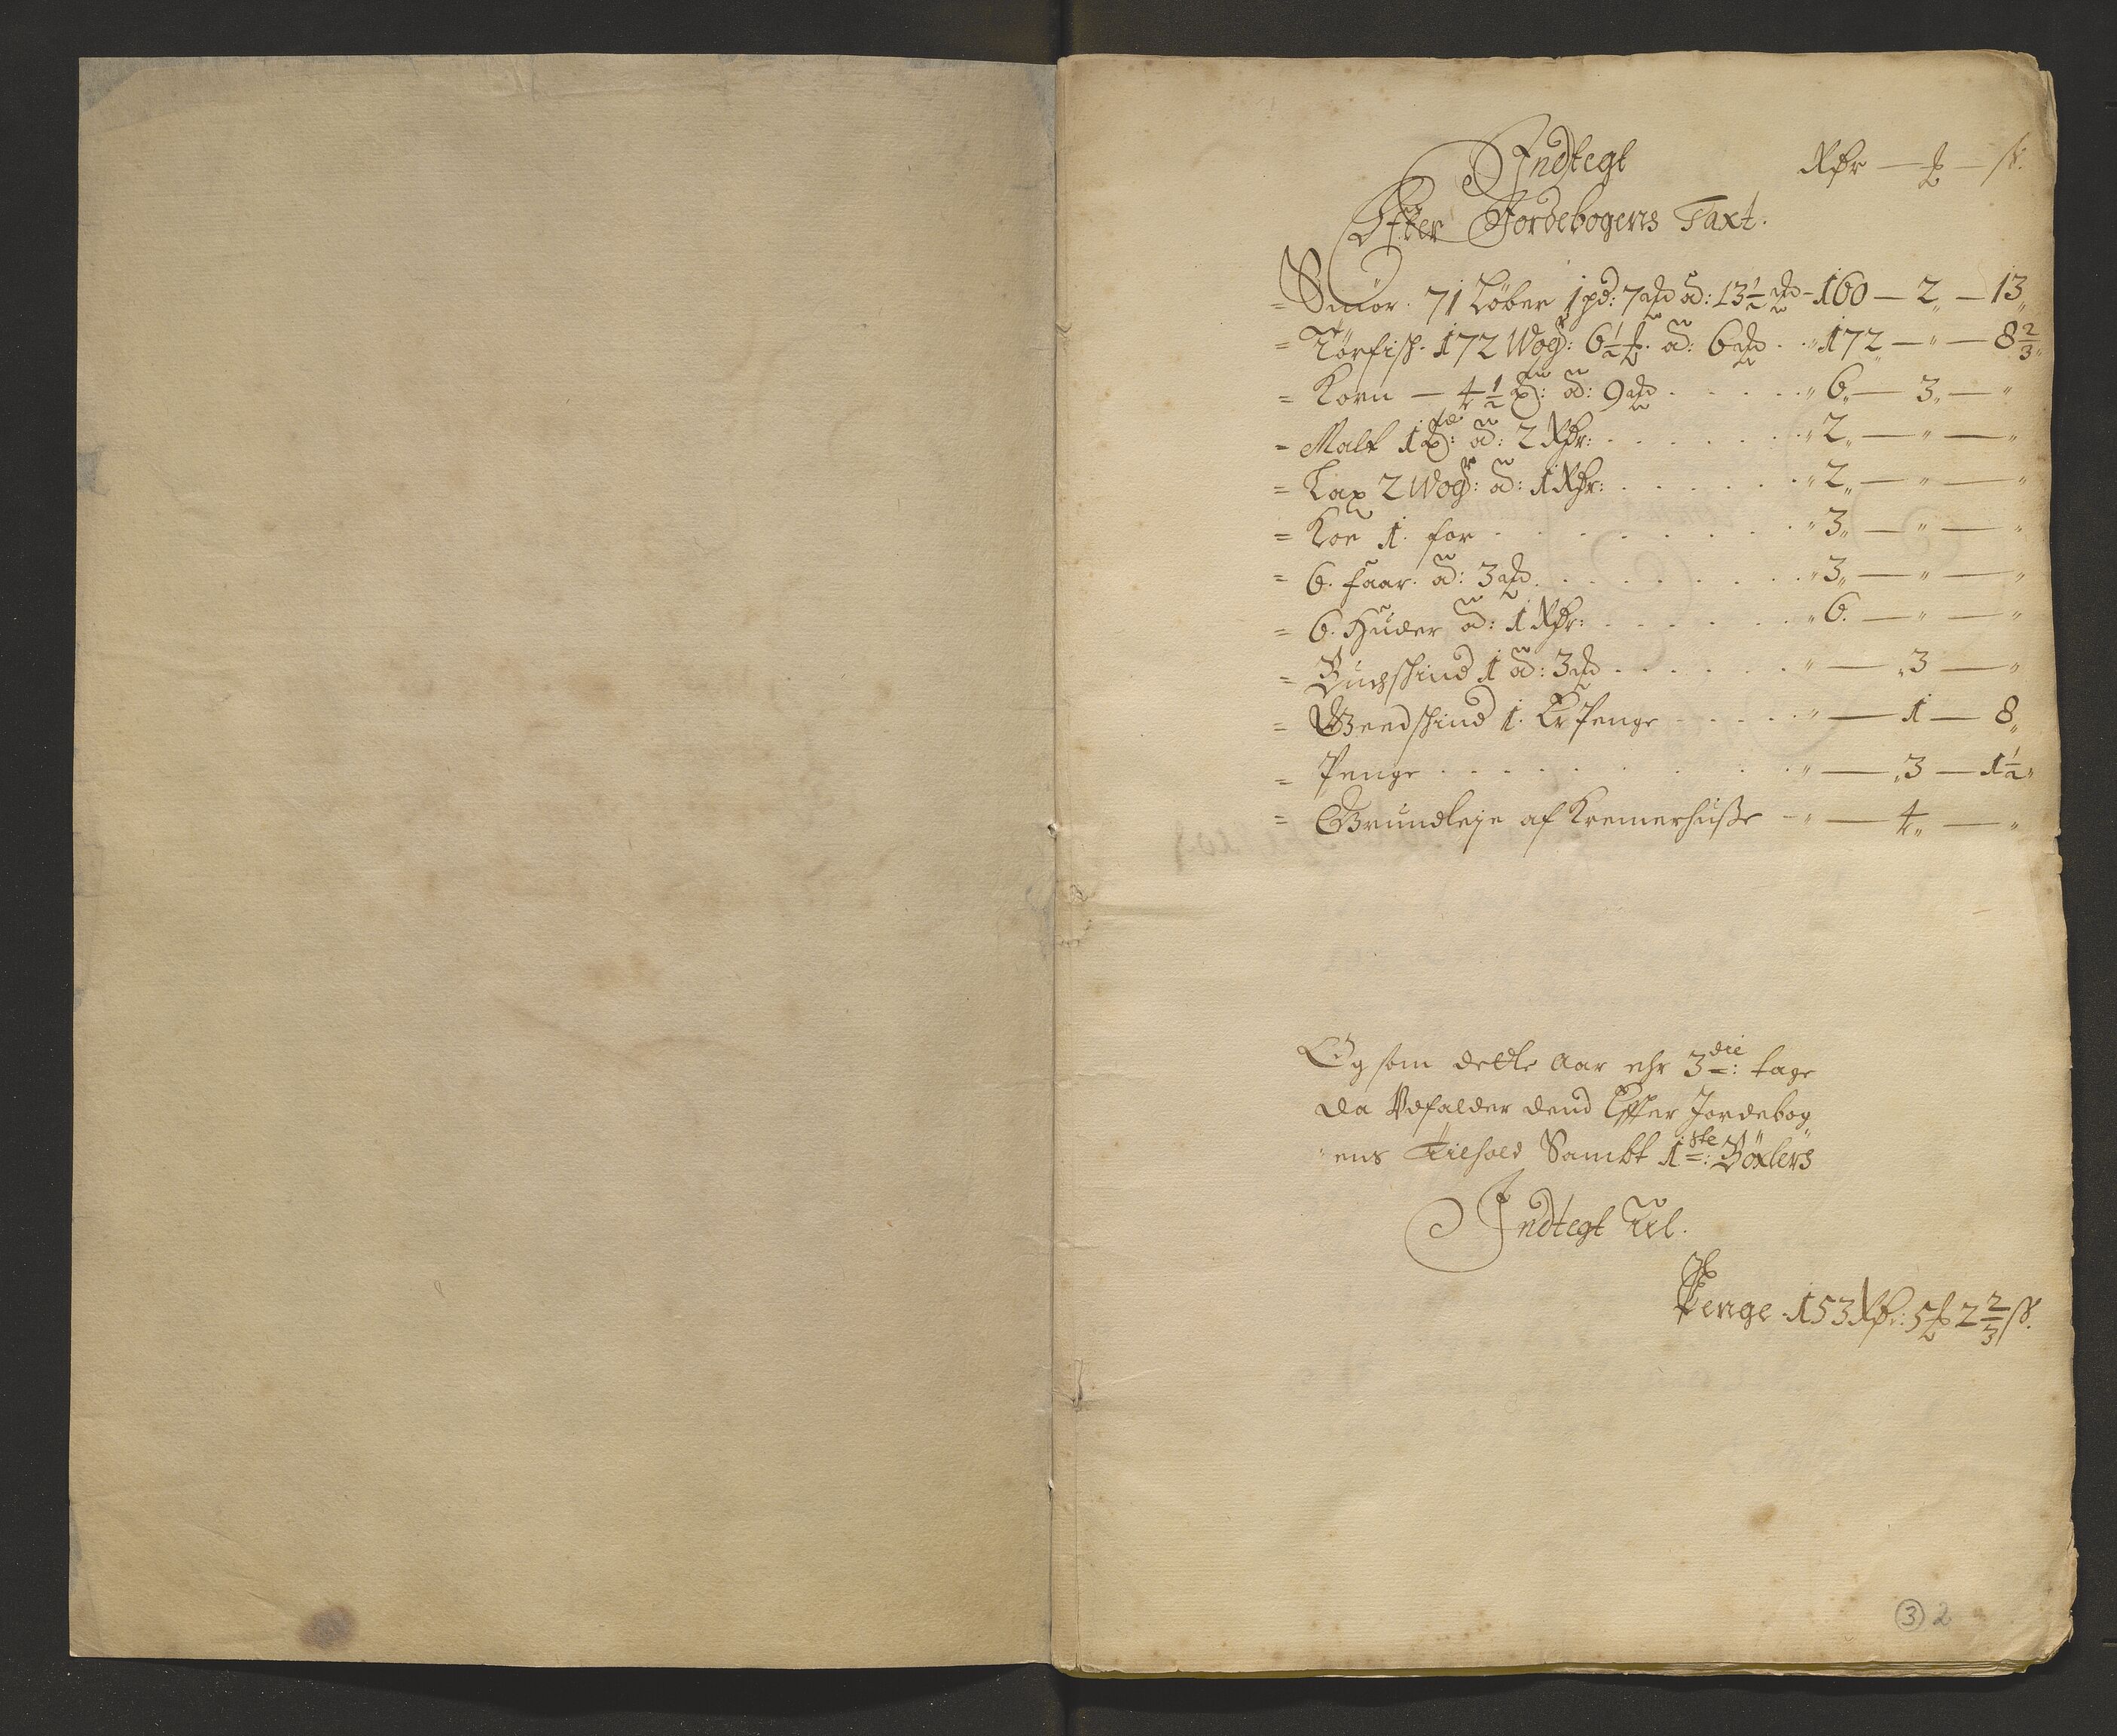 Indtegt Rdr — ₰ — sk.
Efter Jordebogens Taxt.
= Smör. 71 Løber 1 pd: 7 mk ad: 13½ mk - 160 — 2 „ — 13 „
= Törfisk. 172 Wog: 6½ ad: 6 mk . . „ 172 „ — „ — 8⅔ „
= Korn — 4½ ad: 9 mk . . . . „ 6 „ — 3 „ — „
= Malt 1 ad: 2 Rdr: . . . . . . „ 2 „ — „ — „
= Lax 2 Wog: ad: 1 Rdr: . . . . . . „ 2 „ — „ — „
= Koe 1. for . . . . . . . „ 3 „ — „ — „
= 6. faar. ad: 3 mk . . . . . . . „ 3 „ — „ — „
= 6. Huder ad: 1 Rdr: . . . . . . „ 6. — „ — „
= Buchskind 1 ad: 3 mk . . . . . . „ — „ 3 — „
= Geedskind 1. Er Penge . . . . . „ — 1 — 8 „
= Penge . . . . . . . . . „ — „ 3 — 1½ „
= Grundleje af Kremerhusse - „ — 4 „ — „
Og som dette Aar ehr 3die: tage
da Udfalder dend Efter Jordebog
„ens Tilhold Sambt 1ste: Böxlers
Indtegt Til.
Penge . 153 Rdr: 5 2⅔ sk.
3 2